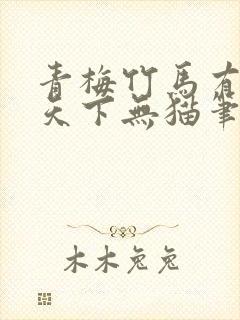 青梅竹馬有
天下無猫筆
木木兔兔